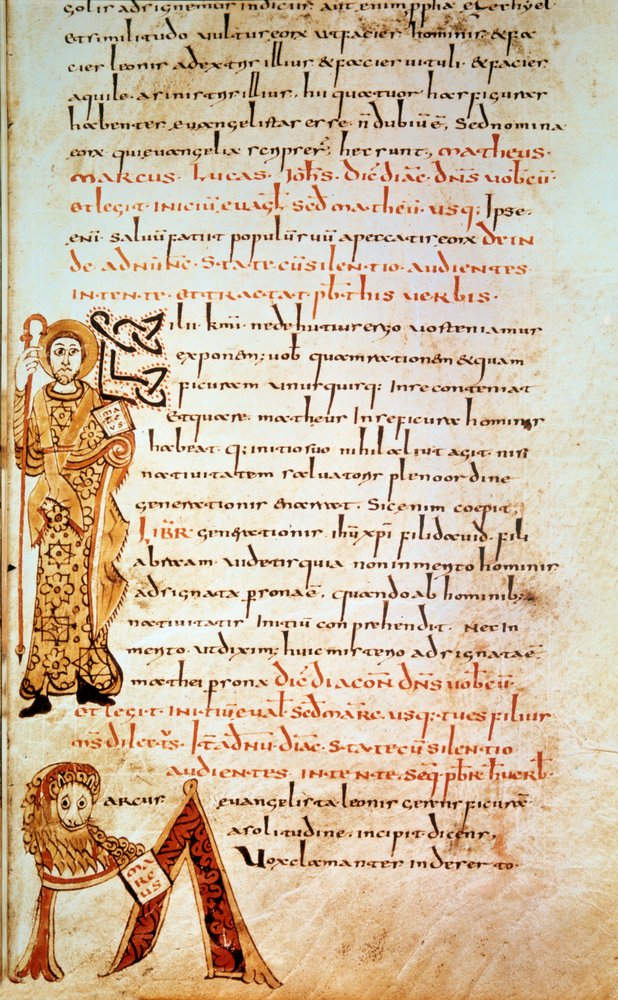 solis ad signem induimur aut enim ppha ezechyel
et similitudo vultus eorū ut facies hominis & fa
cies leonis a dextris illius & facies vituli & facies
aquile a sinistris illius, hii quattuor has figuras
habentes evangelistas esse n̄ dubiū ē, Sed nomina
eorū qui evangelia scripser̄ hec sunt, Matheus.
Marcus. Lucas. Johs. dic̄ diac̄. dn̄s vobcū
et legit iniciū evagl sed matheū. usq; Ipse
eni salvū faciit populū suū a peccatis eorū dein
de adnūne. State cū silentio audientes
intente. et tractat pb̄ this verbis.
Filii kmi ne dehutius ergo vos teniamus
exponem; vob quam rationem & quam
figuram unusquisq; in se conteniat
Et quare matheus in se figurā hominis
habeat. q; initio suo nihil aliut agit nisi
nativitatem salvatoris pleno ordine
generationis enarrat. Sic enim coepit,
Lib̄r generationis ihū xp̄i fili david, fili
abraam. videtis quia non inmento hominis
adsignata psonaē, quando ab hominib;
nativitatis initiū conprehendit. nec in
mento ut diximus; huic misterio adsignataē
mathei psona dic̄ diacon̄ dn̄s vobcū
et legit initiū eval̄ sed marc̄. usq; tu es filius
ms̄ dilectus. It adnū. diac̄. state cū silentio
audientes intente. Seq̄ pb̄r h̄ verb̄.
Marcus evangelista leonis gerens figurā
a solitudine. incipit dicens,
Vox clamantis in deserto.
ma
teu
s
mar
cus